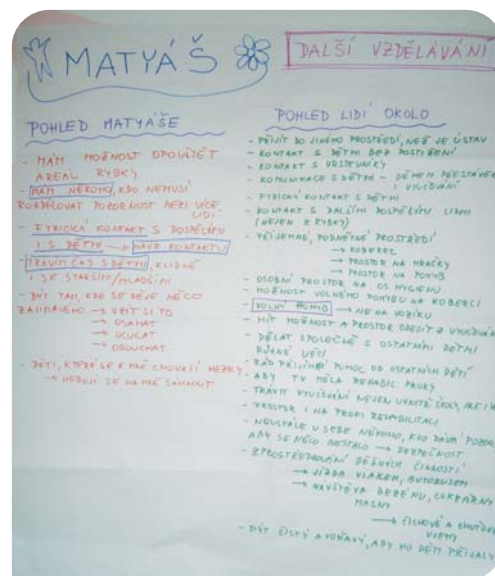 MATYÁŠ
DALŠÍ VZDĚLÁVÁNÍ
POHLED MATYÁŠE
- MÁM MOŽNOST OPOUŠTĚT
AREÁL RYBKY
- MÁM NĚKOHO, KDO NEMUSÍ
ROZDĚLOVAT POZORNOST MEZI VÍCE
LIDÍ
- FYZICKÝ KONTAKT S DOSPĚLÝMI
I S DĚTMI →
- TRÁVIM ČAS S DĚTMI, KLIDNĚ
I SE STARŠÍMI/MLADŠÍMI
- BÝT TAM, KDE SE DĚJE NĚCO
ZAJÍMAVÉHO → VZÍT SI TO
→ OSAHAT
→ OCUCAT
→ OČUCHAT
- DĚTI, KTERÉ SE KE MNĚ CHOVAJÍ HEZKY
→ NEBOJÍ SE NA MNĚ SÁHNOUT
POHLED LIDÍ OKOLO
- PŘIJÍT DO JINÉHO PROSTŘEDÍ, NEŽ JE ÚSTAV
- KONTAKT S DĚTMI BEZ POSTIŽENÍ
- KONTAKT S VRSTEVNÍKY
- KOMUNIKACE S DĚTMI - BĚHEM PŘESTÁVEK
I VYUČOVÁNÍ
- FYZICKÝ KONTAKT S DĚTMI
- KONTAKT S DALŠÍMI DOSPĚLÝMI LIDMI
(NEJEN Z RYBKY)
- PŘÍJEMNÉ, PODNĚTNÉ PROSTŘEDÍ
→ KOBEREC
→ PROSTOR NA HRAČKY
→ PROSTOR NA POHYB
- OSOBNÍ PROSTOR NA OS. HYGIENU
- MOŽNOST VOLNÉHO POHYBU NA KOBERCI
- VOLNÝ POHYB → NE NA VOZÍKU
- MÍT MOŽNOST A PROSTOR ODEJÍT Z
- DĚLAT SPOLEČNĚ S OSTATNÍMI DĚTMI
RŮZNÉ VĚCI
- RÁD PŘIJÍMÁ POMOC OD OSTATNÍCH DĚTÍ
- ABY TV MĚLA REHABIL. PRVKY
- TRÁVIT VYUČOVÁNÍ NEJEN UVNITŘ ŠKOLY, ALE I
- PROSTOR I NA PROFI REHABILITACI
- NEUSTÁLE U SEBE NĚKOHO, KDO DÁVÁ POZOR,
ABY SE NĚCO NESTALO → BEZPEČNOST
- ZPROSTŘEDKOVÁNÍ BĚŽNÝCH ČINNOSTÍ
→ JÍZDA VLAKEM, AUTOBUSEM
→ NÁVŠTĚVA BAZÉNU, CUKRÁRNY
→ ČICHOVÉ A CHUŤOVÉ
VJEMY
- BÝT ČISTÝ A VOŇAVÝ, ABY HO DĚTI PŘIJALY